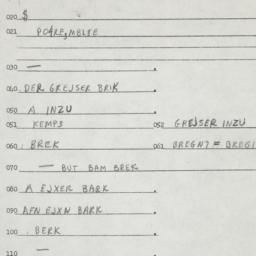 020 $
021 PO4RE,MBLEE
030 —
040 DER GREJSER BRIK
050 A INZU
051 KEMP3 052 GREJSER INZU
060 : BREK 061 BREGN7 = BREGI
070 — BUT BAM BREK
080 A EJXER BARK
090 AFN EJXN BARK
100 : BERK
110 —